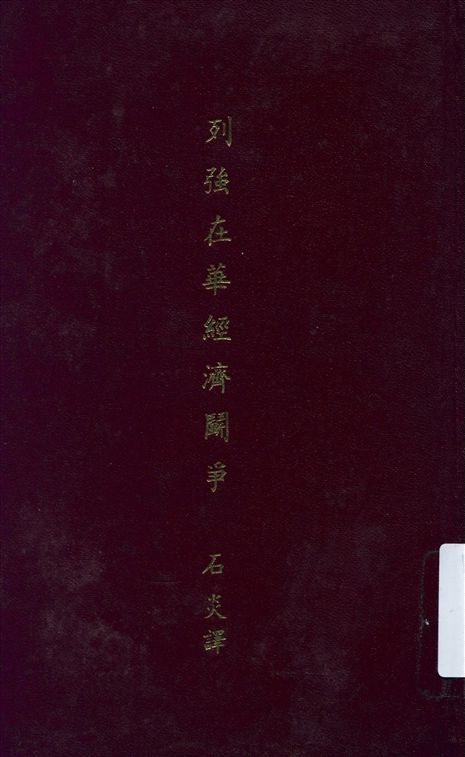 列強在華經濟鬪爭
石炎譯